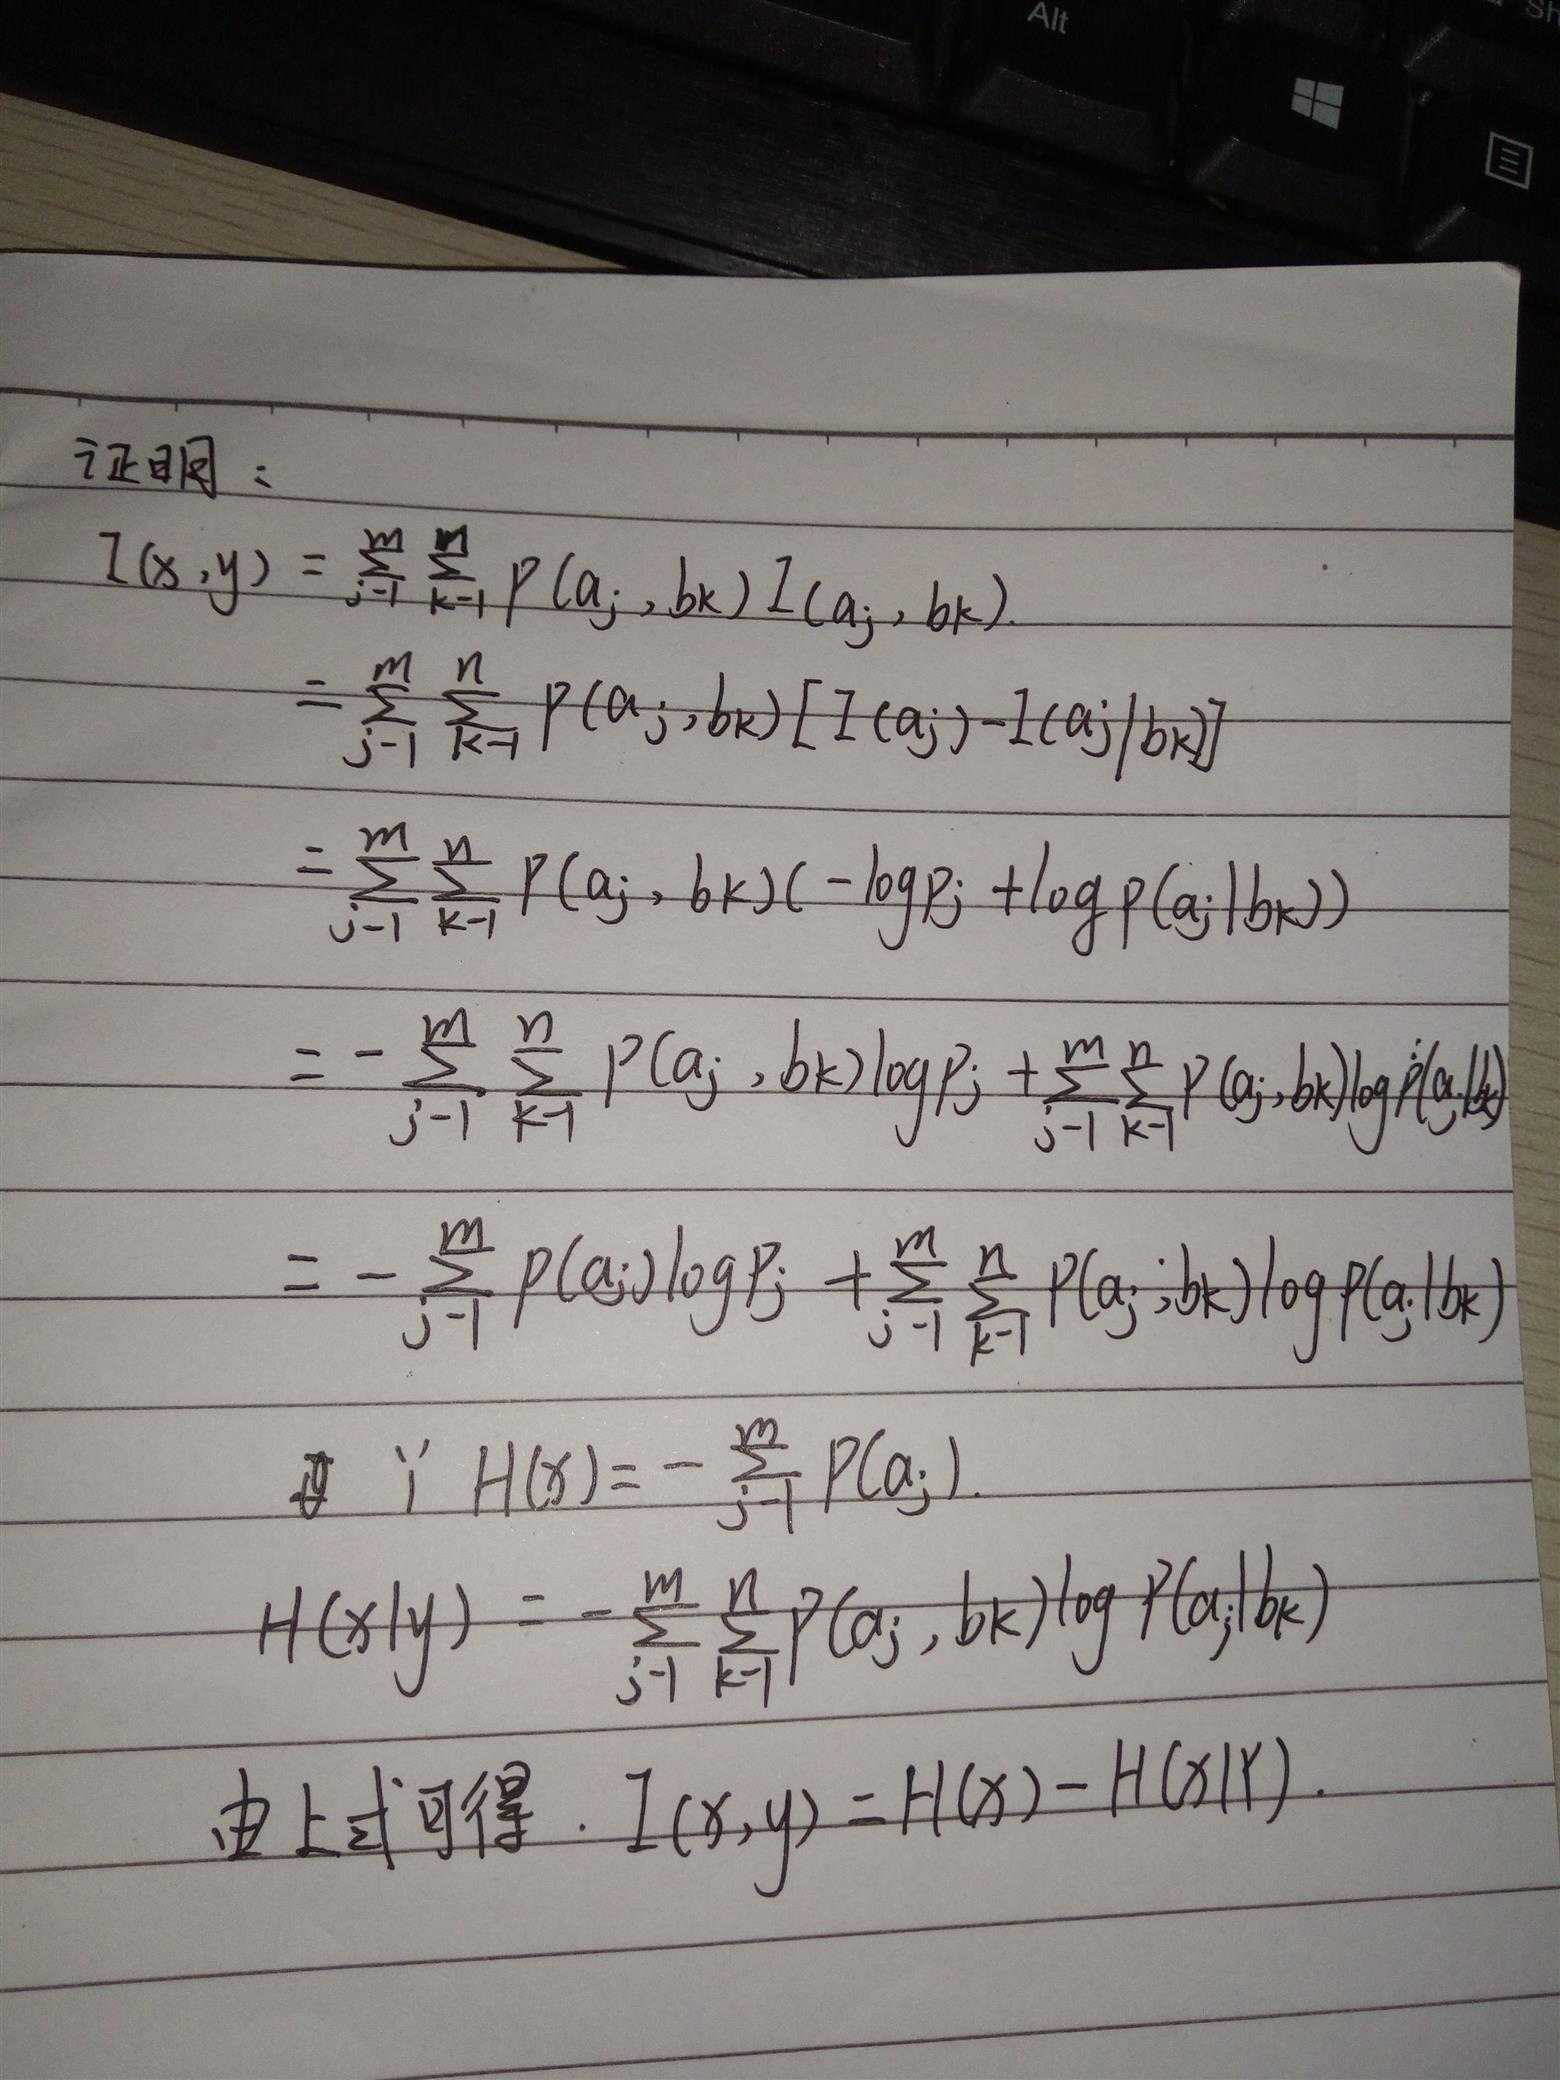 Alt
Sh
证明:
I(x,y) = ∑_{j-1}^{m} ∑_{k-1}^{n} p(aj, bk) I(aj, bk).
= ∑_{j-1}^{m} ∑_{k-1}^{n} p(aj, bk) [I(aj) - I(aj|bk)]
= ∑_{j-1}^{m} ∑_{k-1}^{n} p(aj, bk) (-log pj + log p(aj|bk))
= - ∑_{j-1}^{m} ∑_{k-1}^{n} p(aj, bk) log pj + ∑_{j-1}^{m} ∑_{k-1}^{n} p(aj, bk) log p(aj|bk)
= - ∑_{j-1}^{m} p(aj) log pj + ∑_{j-1}^{m} ∑_{k-1}^{n} p(aj;bk) log p(aj|bk)
∵ H(x) = - ∑_{j-1}^{m} p(aj).
H(x|y) = - ∑_{j-1}^{m} ∑_{k-1}^{n} p(aj, bk) log p(aj|bk)
由上式可得. I(x,y) = H(x) - H(x|Y).